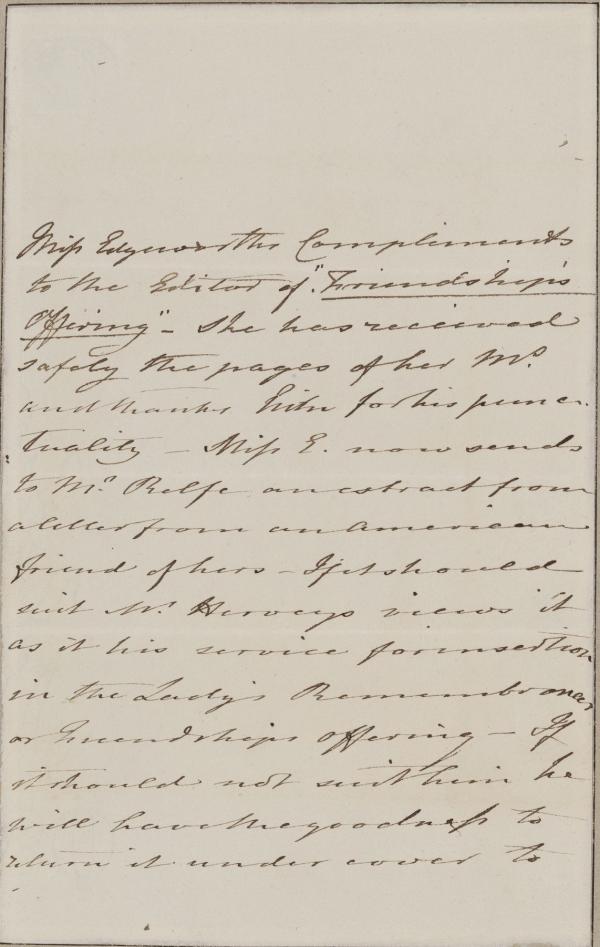 Miss Edgeworths Compliments
to the Editor of "Friendship's
Offering" – She has received
safely the pages of her Ms.
and thanks him for his punc-
tuality – Miss E. now sends
to Mr. Relfe an extract from
a letter from an American
friend of hers – If it should
suit Mr. Herveys views it
as it his service for insertion
in the Lady's Remembrancer
or Friendships offering – If
it should not suit him he
will have the goodness to
return it under cover to